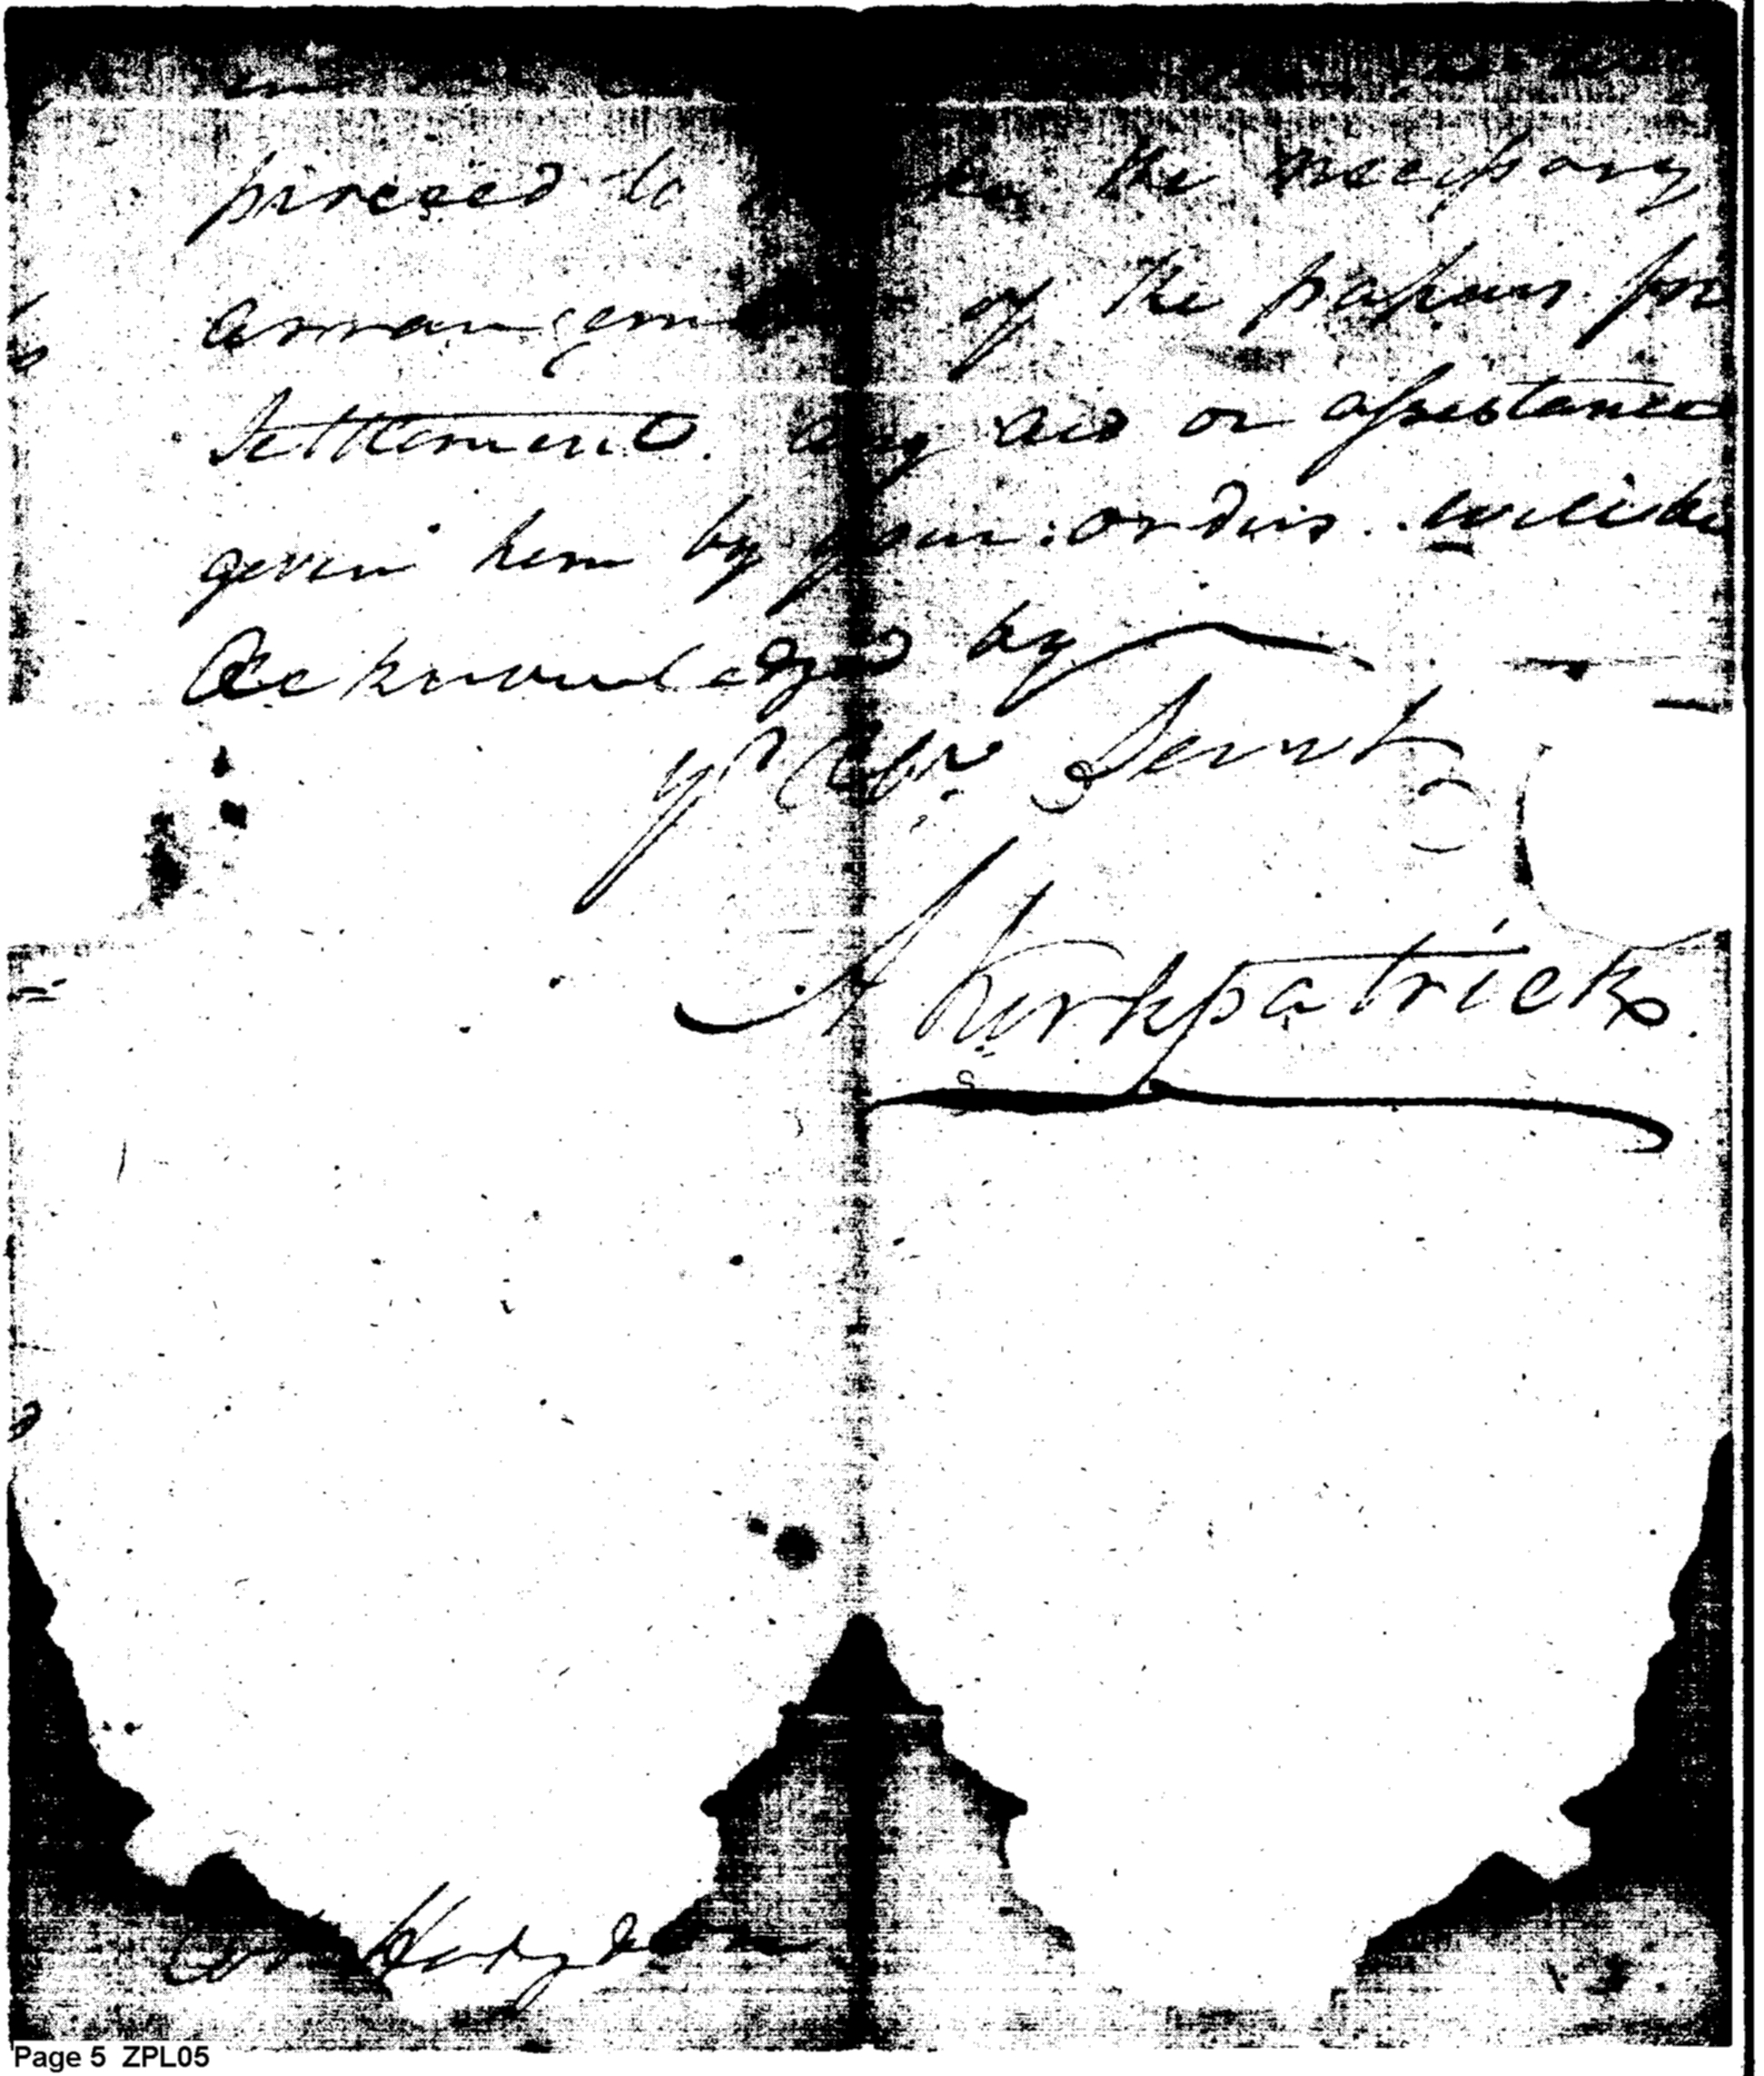 proceed to the necessary
arrangement of the papers for
Settlement. any aid or assistance
given him by your orders. will be
Acknowledged by
yr Obr Servt
A Kirkpatrick.
Col Hodgdon
Page 5 ZPL05